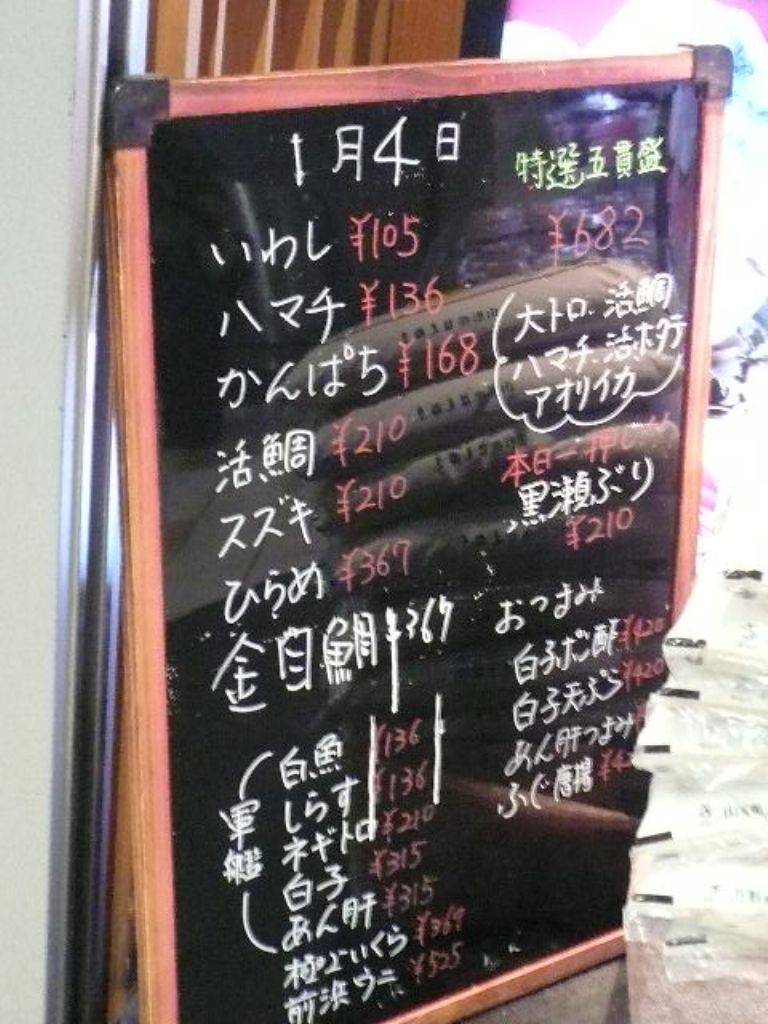 1月4日
いわし ¥105
ハマチ ¥136
かんぱち ¥168
活鯛 ¥210
スズキ ¥210
ひらめ ¥367
金目鯛 ¥367
軍艦
白魚 ¥136
しらす ¥136
ネギトロ ¥210
白子 ¥315
あん肝 ¥315
極上いくら ¥367
前浜ウニ ¥525
特選五貫盛
¥682
大トロ、活鯛
ハマチ、活ホタテ
アオリイカ
本日一押し!!
黒瀬ぶり
¥210
おつまみ
白子ポン酢 ¥420
白子天ぷら ¥420
あん肝つまみ
ふぐ唐揚